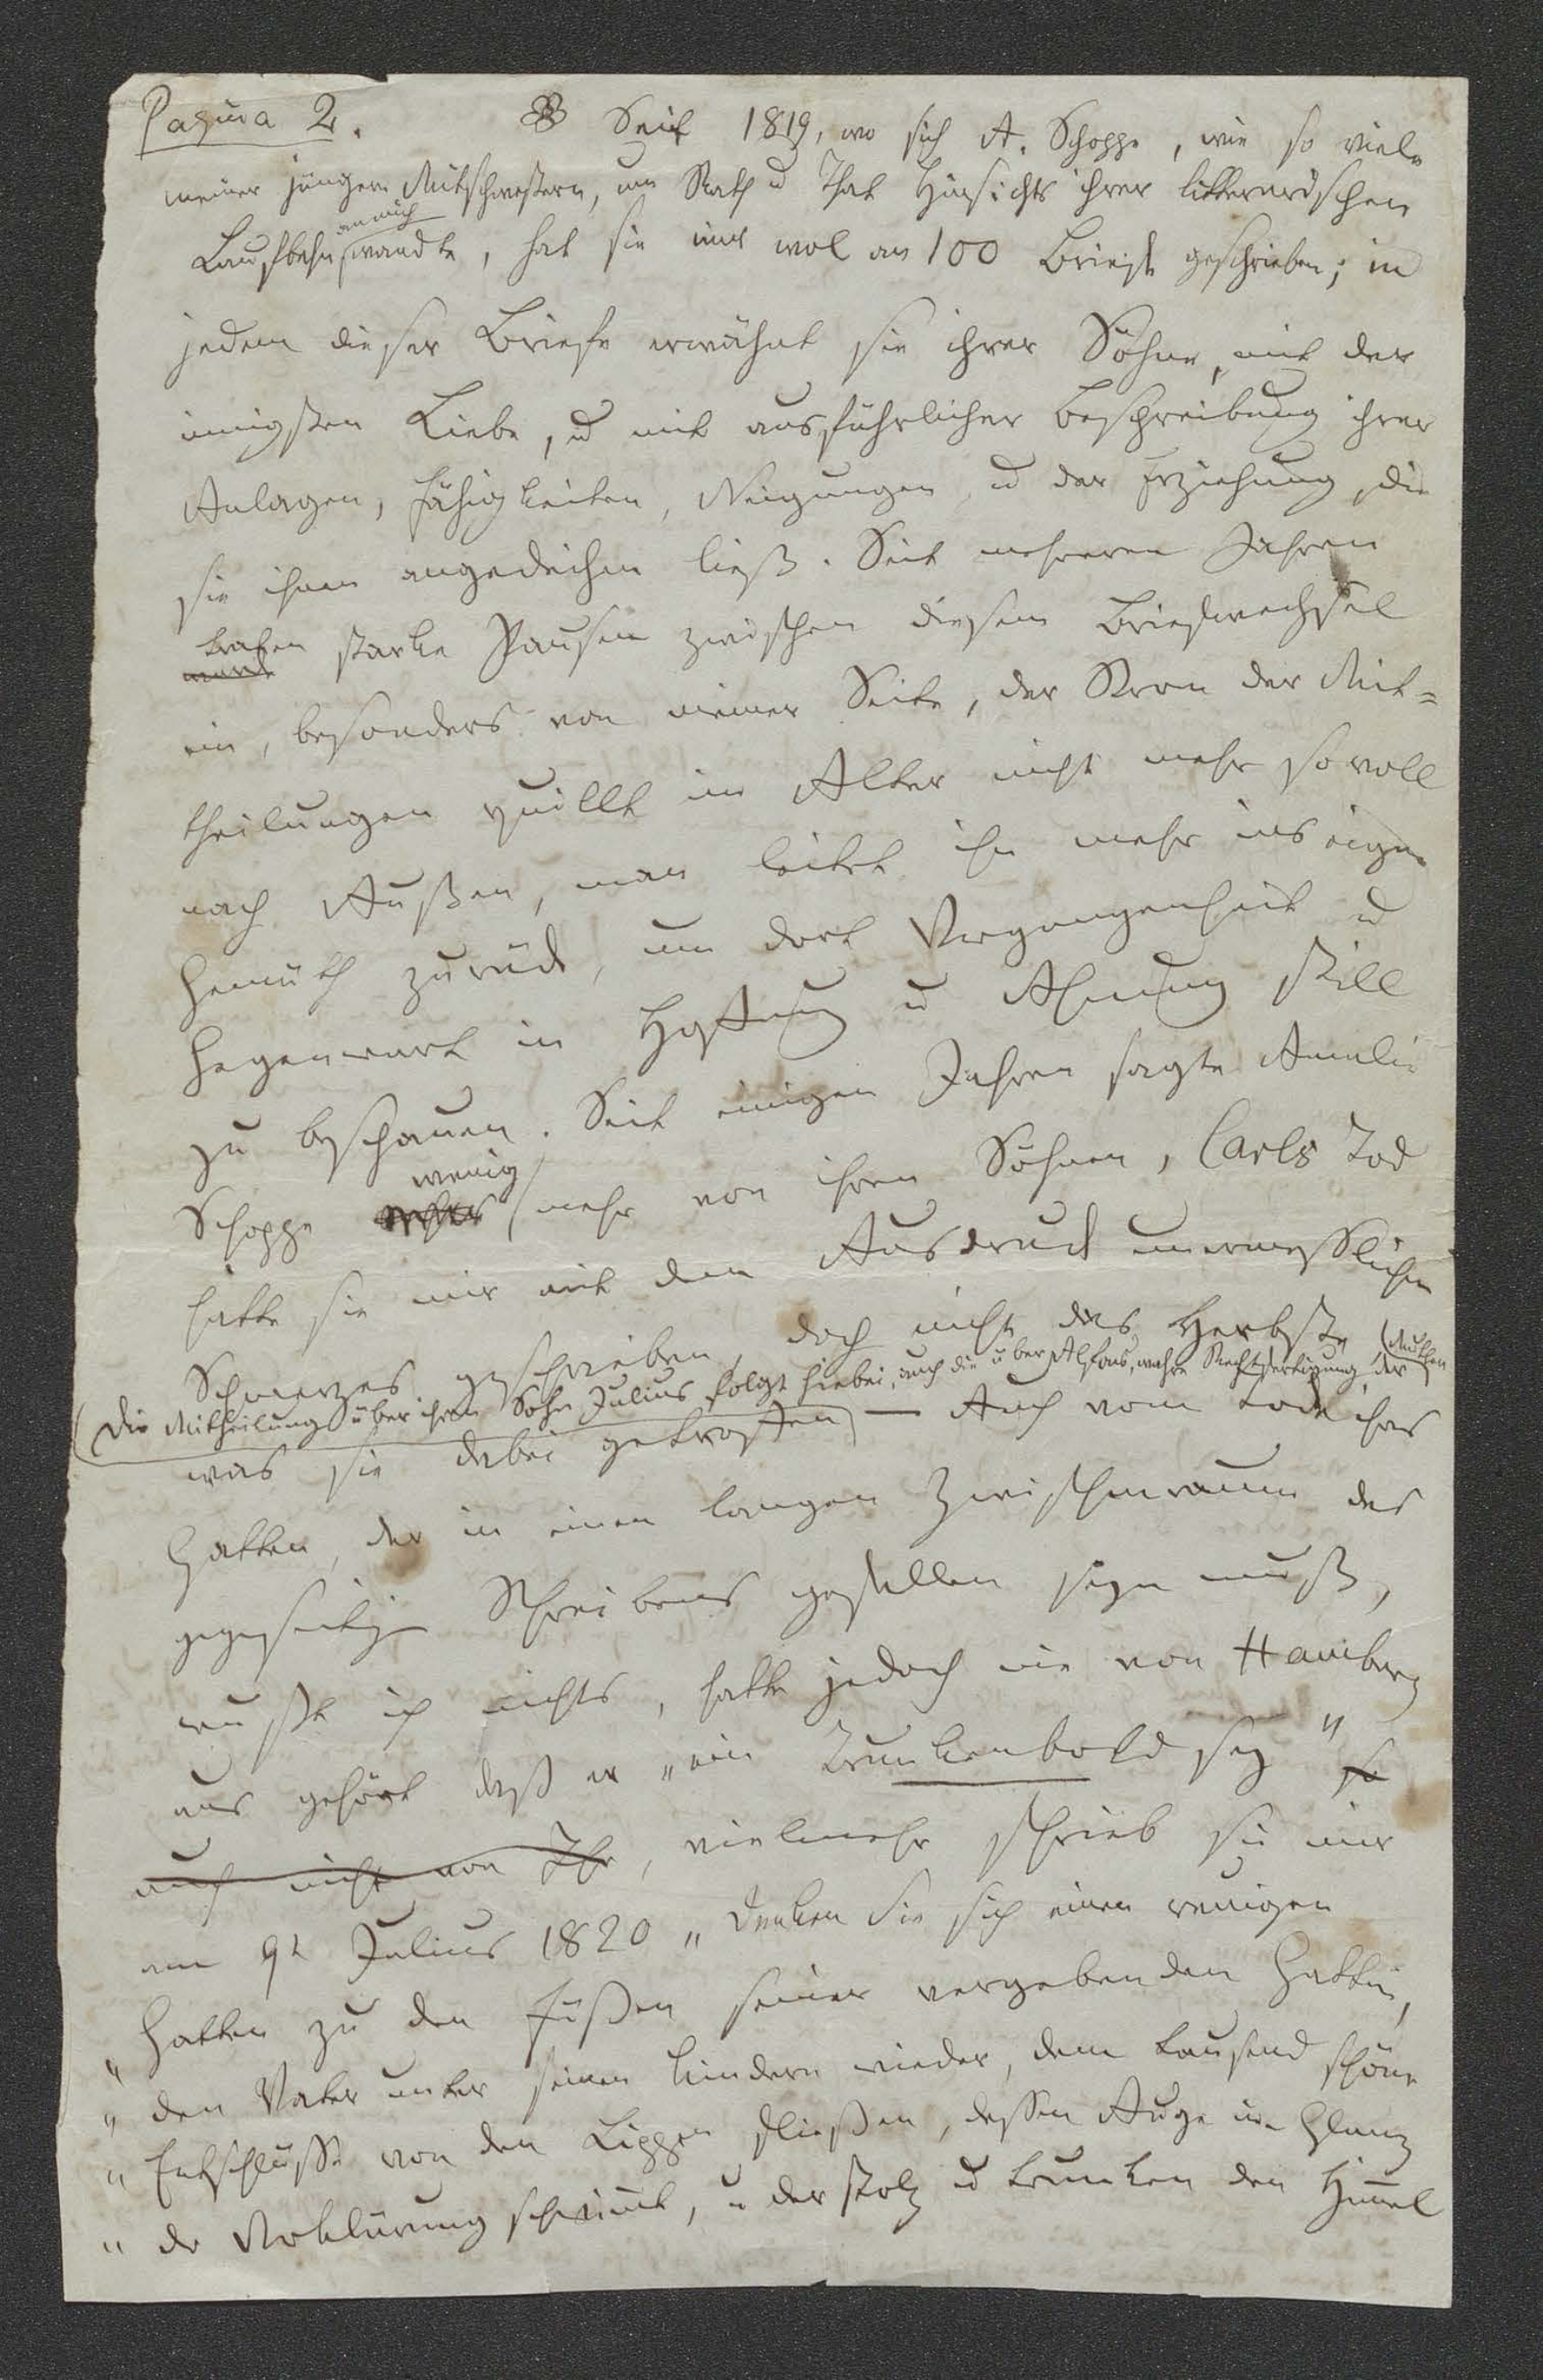 Pagina 2. Seit 1819, wo sich A. Schoppe, wie so viele
meiner jüngern Mitschwestern, um Rath u That Hinsichts ihrer litterarischen
an mich
Laufbahn wandte, hat sie mir wol an 100 Briefe geschrieben; in
jedem dieser Briefe erwähnt sie ihrer Söhne, mit der
innigsten Liebe, u mit ausführlicher Beschreibung ihrer
Anlagen, Fähigkeiten, Neigungen, u der Erziehung, die
sie ihnen angedeihen ließ. Seit mehreren Jahren
trafen starke Pausen zwischen diesem Briefwechsel
ein, besonders von meiner Seite, der Strom der Mit=
theilungen quillt im Alter nicht mehr so voll
nach Außen, man leitet ihn mehr ins eigne
Gemüth zurück, um dort Vergangenheit u
Gegenwart in Hoffnung u Ahnung still
zu beschauen. Seit einigen Jahren sagte Amalie
wenig
Schoppe mehr von ihren Söhnen, Carls Tod
hatte sie mir mit dem Ausdruck unermesslichen
Schmerzes geschrieben, doch nicht das Herbste
(Die Mittheilung über ihren Sohn Julius folgt hiebei, auch die über Alfons, wahre Rechtfertigung der Mutter
was sie dabei getroffen) — Auch vom Tode ihres
Gatten, der in einen langen Zwischenraum des
gegenseitigen Schreibens gefallen seyn muß,
wußte ich nichts, hatte jedoch nie von Hamburg
aus gehört daß er „ein Trunkenbold sey" so
auch nicht von Ihr, vielmehr schrieb sie mir
am 9t Julius 1820 „Denken Sie sich einen reuigen
„Gatten zu den Füßen seiner vergebenden Gattin,
„den Vater unter seinen Kindern wieder, dem tausend schöne
„Entschlüsse von den Lippen fließen, dessen Auge im Glanz
„der Verklärung schwimmt, u der stolz u trunken den Himel